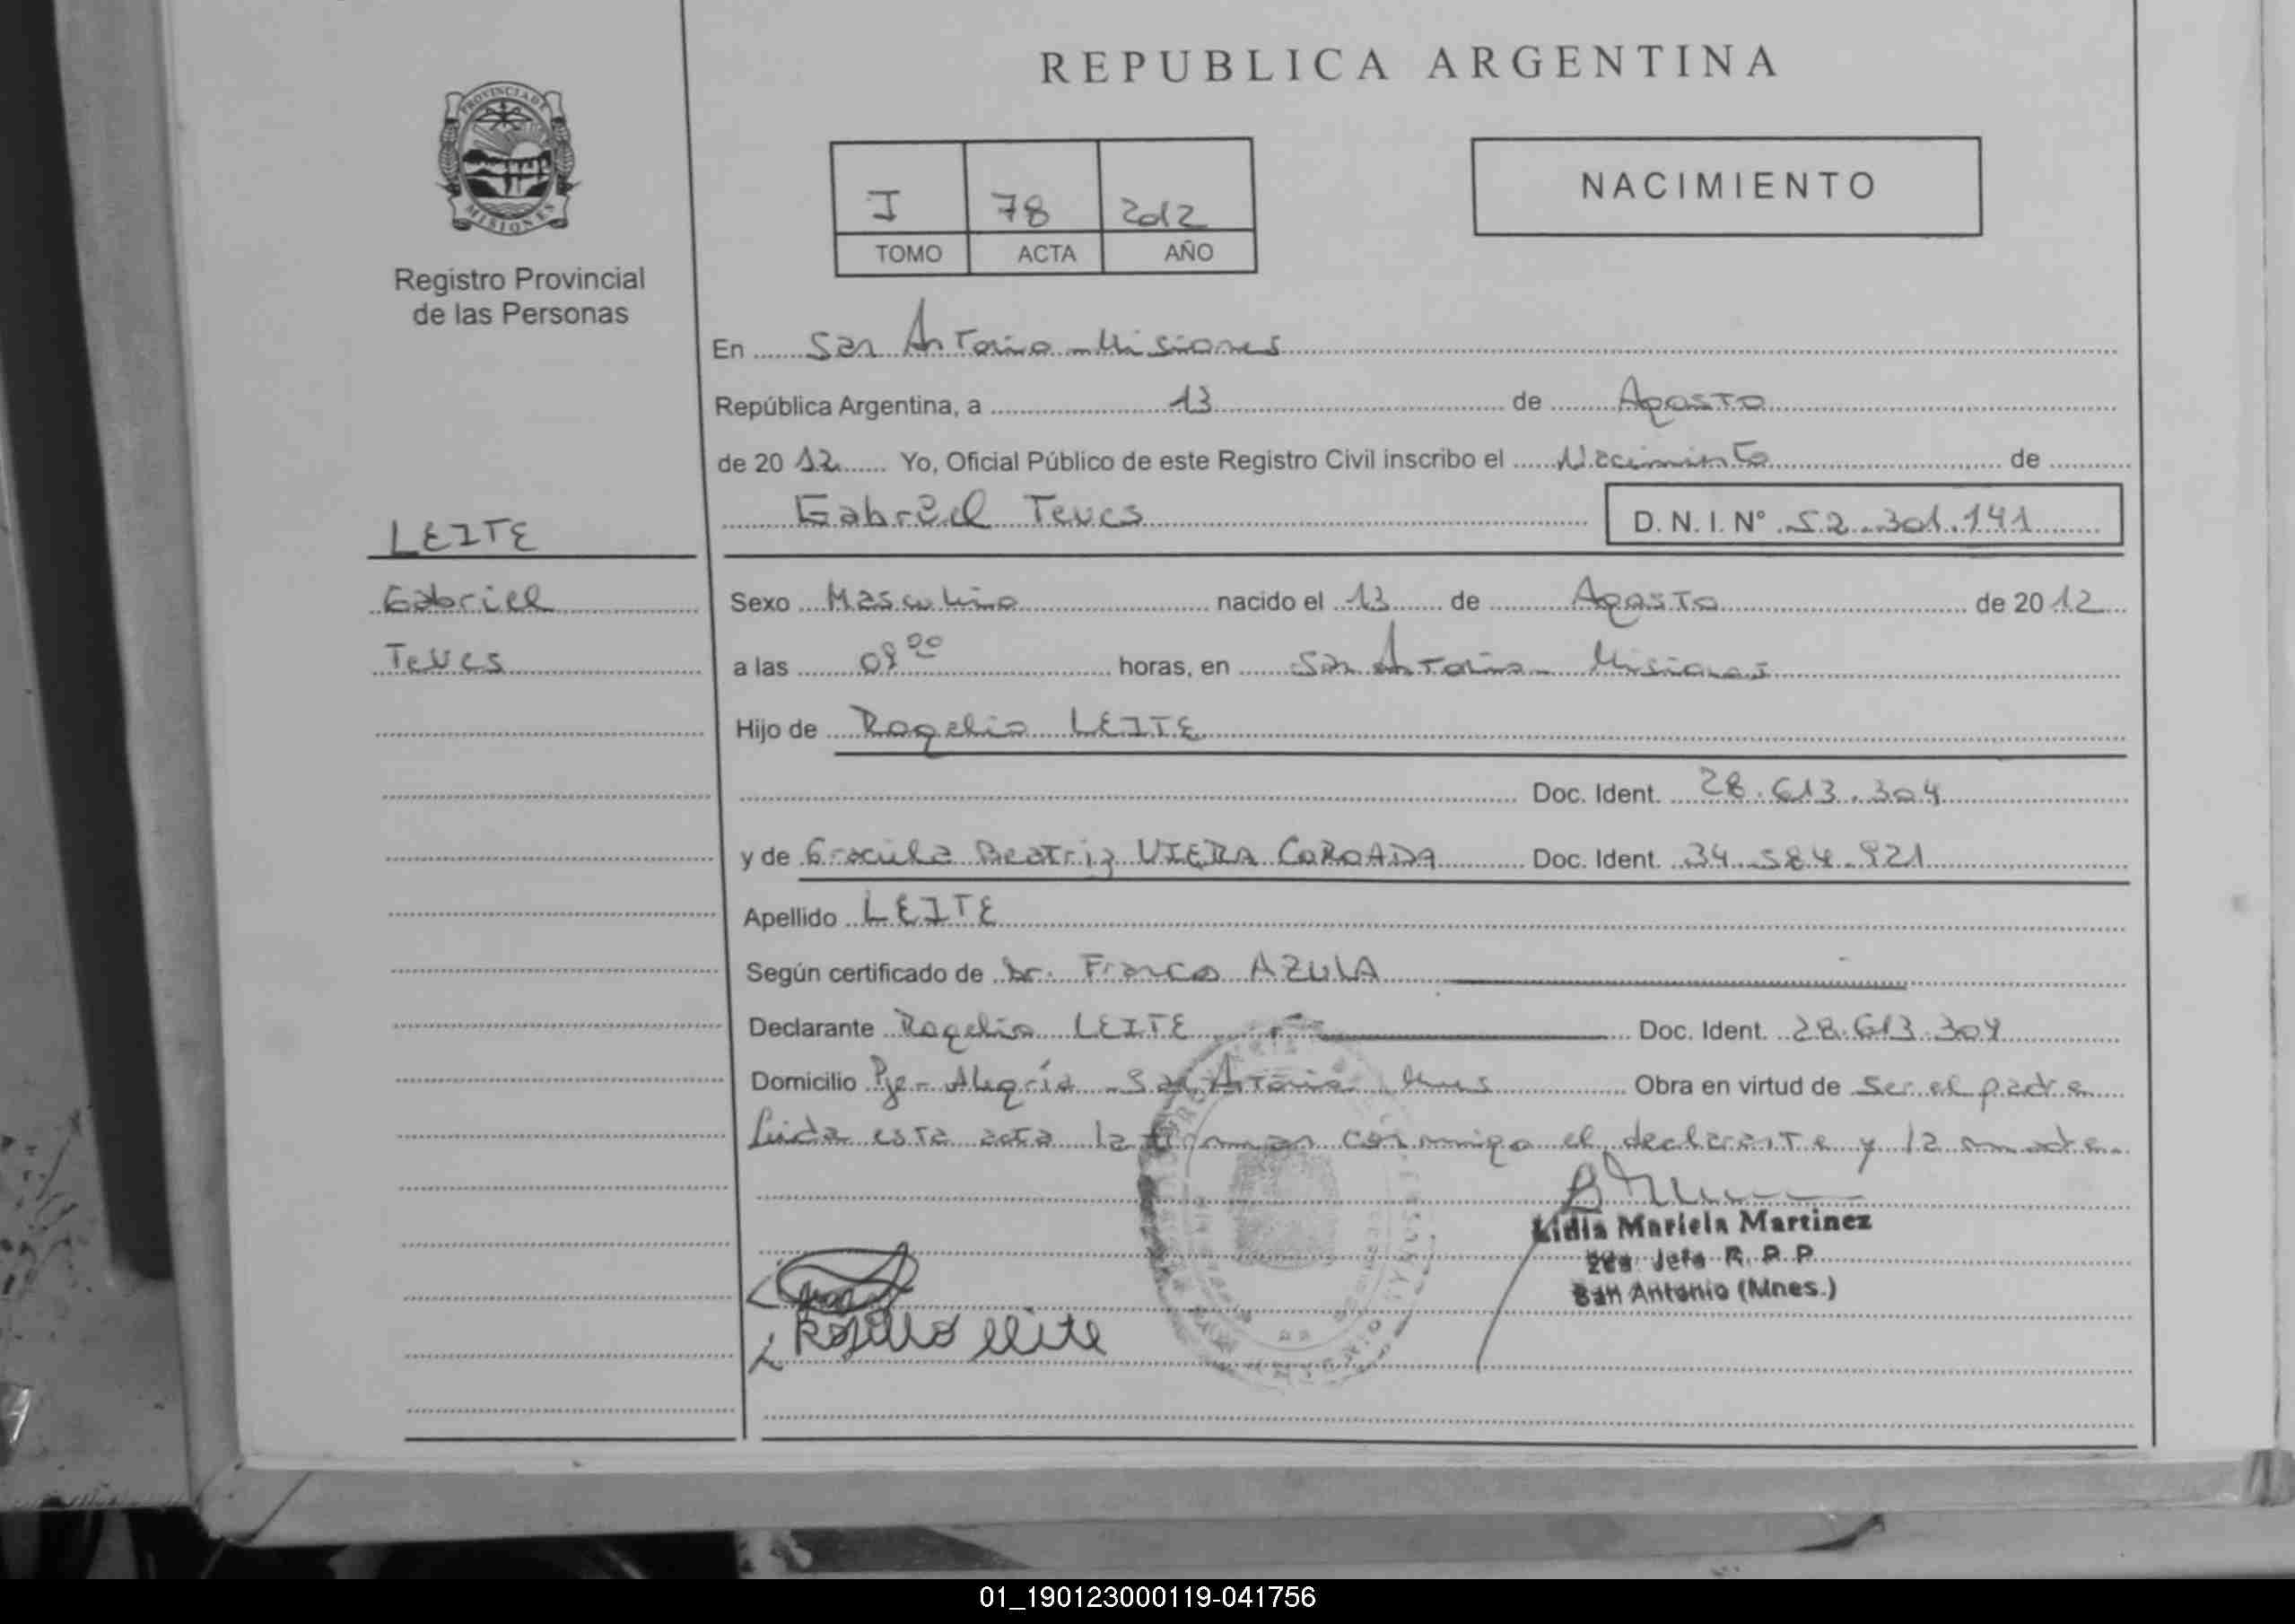 REPUBLICA ARGENTINA
PROVINCIA DE
MISIONES
Registro Provincial
de las Personas
I 78 2012
TOMO ACTA AÑO
NACIMIENTO
En San Antonio - Misiones
República Argentina, a 13 de Agosto
de 20 12 Yo, Oficial Público de este Registro Civil inscribo el Nacimiento de
Gabriel Teves D. N. I. Nº 52.301.141
LEITE
Gabriel
Teves
Sexo Masculino nacido el 13 de Agosto de 20 12
a las horas, en San Antonio - Misiones
Hijo de Rogelio LEITE
Doc. Ident. 28.613.304
y de Beatriz VIERA COROADA Doc. Ident. 34.584.921
Apellido LEITE
Según certificado de Dr. Franco AZULA
Declarante Rogelio LEITE Doc. Ident. 28.613.304
Domicilio Pje- Alegría - San Antonio Mnes Obra en virtud de ser el padre
Leida esta acta la firman conmigo el declarante y la madre.
Lidia Mariela Martinez
Jefa R. P. P.
San Antonio (Mnes.)
leite
01_190123000119-041756